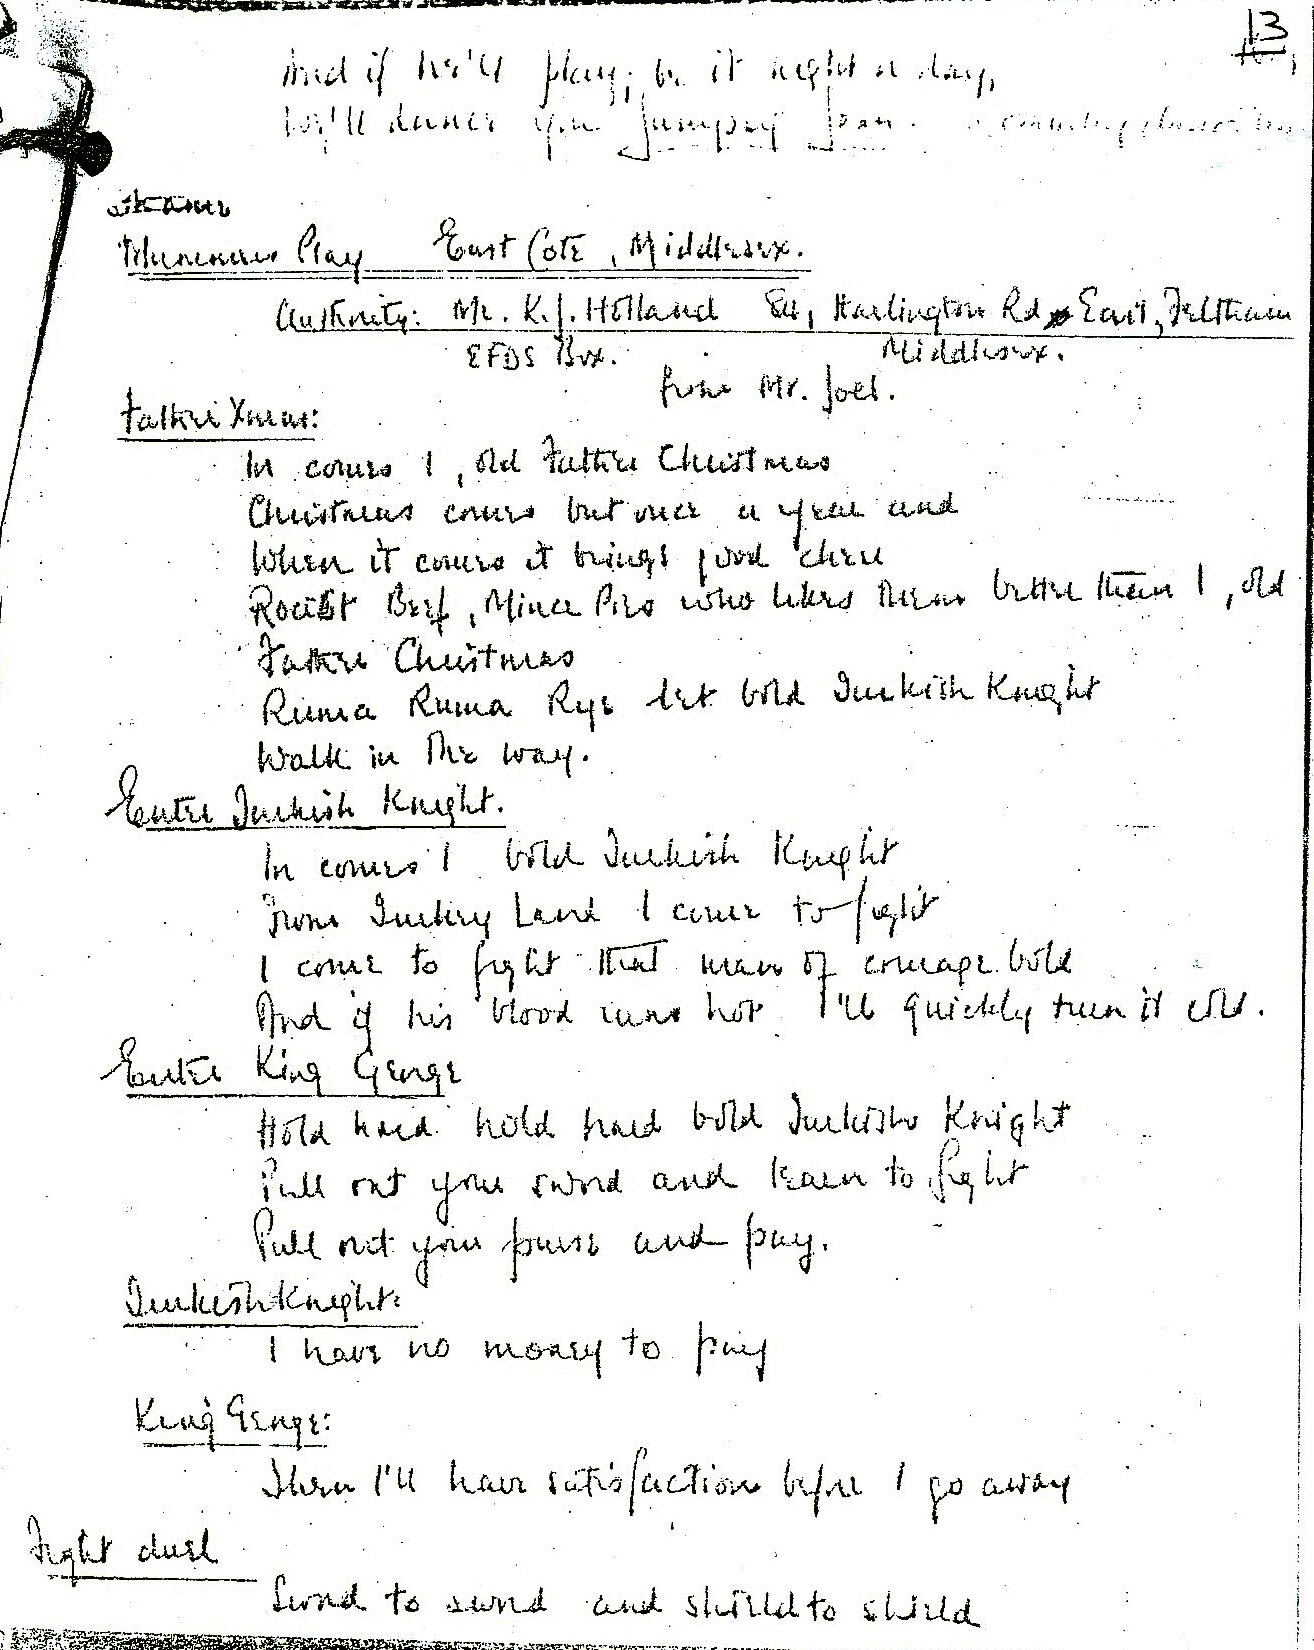 13
And if he'll play, be it night or day,
We'll dance you Jumping Joan. a country dance tune
Mummers Play East Cote, Middlesex.
Authority: Mr. K.J. Holland Harlington Rd East, Feltham
EFDS Box. Middlesex.
from Mr. Joel.
Father Xmas:
In comes I, old Father Christmas
Christmas comes but once a year and
When it comes it brings good cheer
Roast Beef, Mince Pies who likes them better than I, old
Father Christmas
Ruma Ruma Rye let bold Turkish Knight
Walk in the way.
Enter Turkish Knight.
In comes I bold Turkish Knight
From Turkey Land I come to fight
I come to fight that man of courage bold
And if his blood runs hot I'll quickly turn it cold.
Enter King George
Hold hard hold hard bold Turkish Knight
Pull out your sword and learn to fight
Pull out your purse and pay.
Turkish Knight:
I have no money to pay
King George:
Then I'll have satisfaction before I go away
Fight duel
Sword to sword and shield to shield